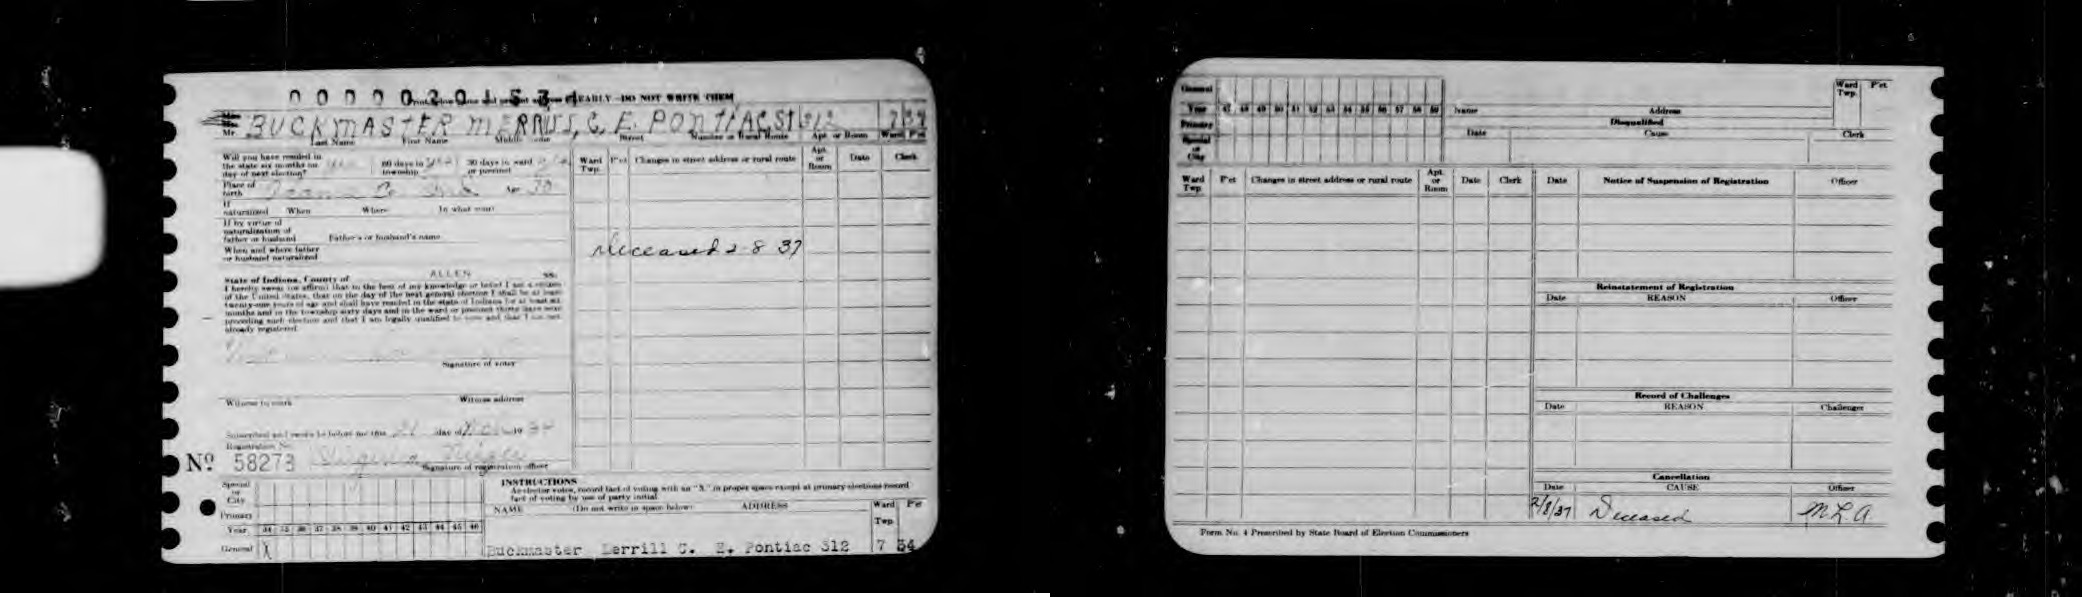 0000020153
CLEARLY DO NOT WRITE THEM
Mr. BUCKMASTER MERRILL, C. E. PONTIAC ST 312 7 34
Last Name First Name Middle Name Street Number or Rural Route Apt. or Room Ward P'ct
Will you have resided in the state six months on day of next election? 60 days in township 30 days in ward or precinct
Place of birth Age
If naturalized When Where In what court
If by virtue of naturalization of father or husband Father's or husband's name
When and where father or husband naturalized
State of Indiana, County of ALLEN ss:
I hereby swear (or affirm) that to the best of my knowledge or belief I am a citizen
of the United States, that on the day of the next general election I shall be at least
twenty-one years of age and shall have resided in the state of Indiana for at least six
months and in the township sixty days and in the ward or precinct thirty days next
preceding such election and that I am legally qualified to vote and that I am not
already registered.
Signature of voter
Witness to mark Witness address
Subscribed and sworn to before me this day of 19
Registration No.
No 58273
Signature of registration officer
Ward Twp. P'ct Changes in street address or rural route Apt. or Room Date Clerk
Deceased 2-8 37
Special or City
Primary
Year 34 35 36 37 38 39 40 41 42 43 44 45 46
General X
INSTRUCTIONS
As elector votes, record fact of voting with an "X" in proper space except at primary elections record
fact of voting by use of party initial
NAME (Do not write in space below) ADDRESS Ward Twp. P'ct
Buckmaster Merrill C. E. Pontiac 312 7 34
General
Year 47 48 49 50 51 52 53 54 55 56 57 58 59
Primary
Special or City
Name Address Ward Twp. P'ct
Disqualified
Date Cause Clerk
Ward Twp. P'ct Changes in street address or rural route Apt. or Room Date Clerk
Date Notice of Suspension of Registration Officer
Reinstatement of Registration
Date REASON Officer
Record of Challenges
Date REASON Challenger
Cancellation
Date CAUSE Officer
2/8/37 Deceased M.L.A.
Form No. 4 Prescribed by State Board of Election Commissioners